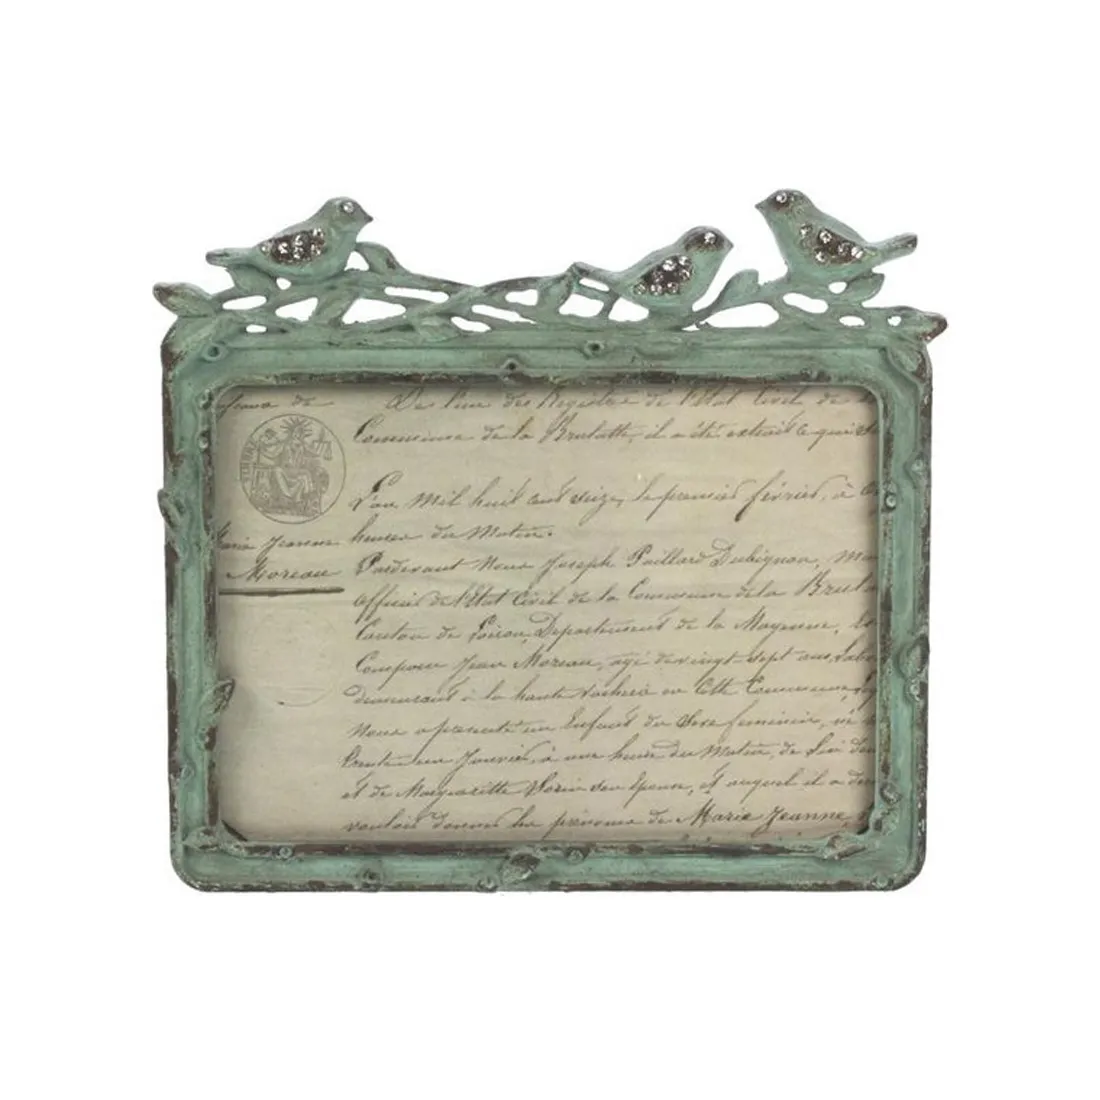 De l'un des Registre de l'Etat Civil de
Commune de la Brulatte, il a été extrait ce qui
L'an mil huit cent seize, le premier février, à
Marie Jeanne
heures du Matin.
Moreau
Pardevant Nous Joseph Paillard Dubignon,
officier de l'Etat Civil de la Commune de la
Canton de Loiron, Departement de la Mayenne,
Comparu Jean Moreau, agé de vingt-sept ans,
demeurant à la haute en Cette Commune,
Nous a présenté un Enfant du Sexe feminin, né
trente un Janvier, à une heure du Matin, de
et de Margueritte son Epouse, et auquel il a
vouloir donner les prénoms de Marie Jeanne,